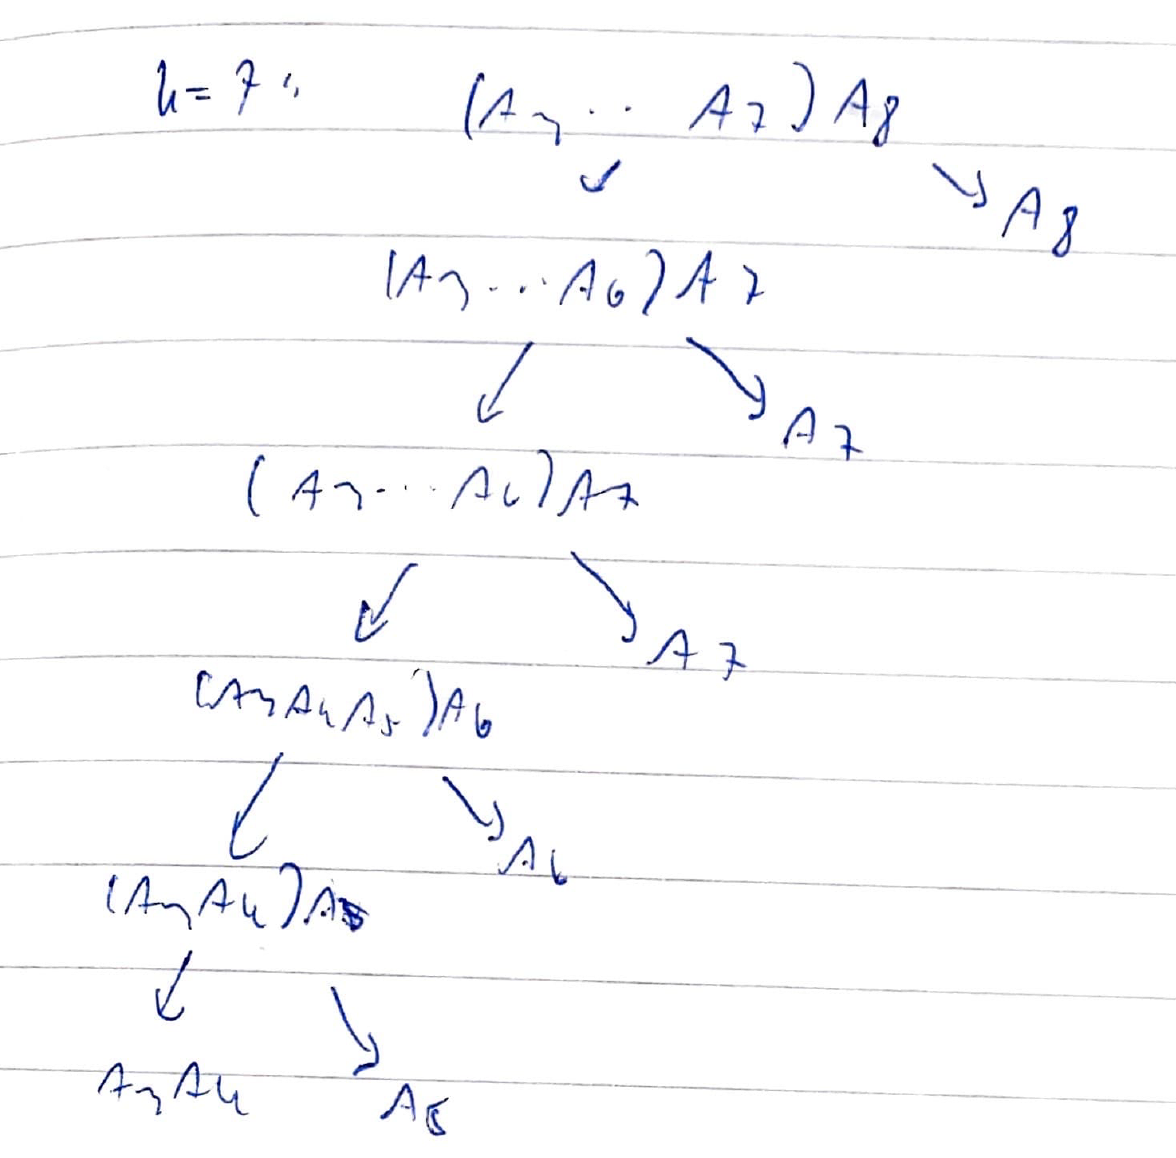 k=7: (A3... A7)A8
A8
(A3...A6)A7
A7
(A3...A6)A7
A7
(A3A4A5)A6
A6
(A3A4)A5
A3A4
A5